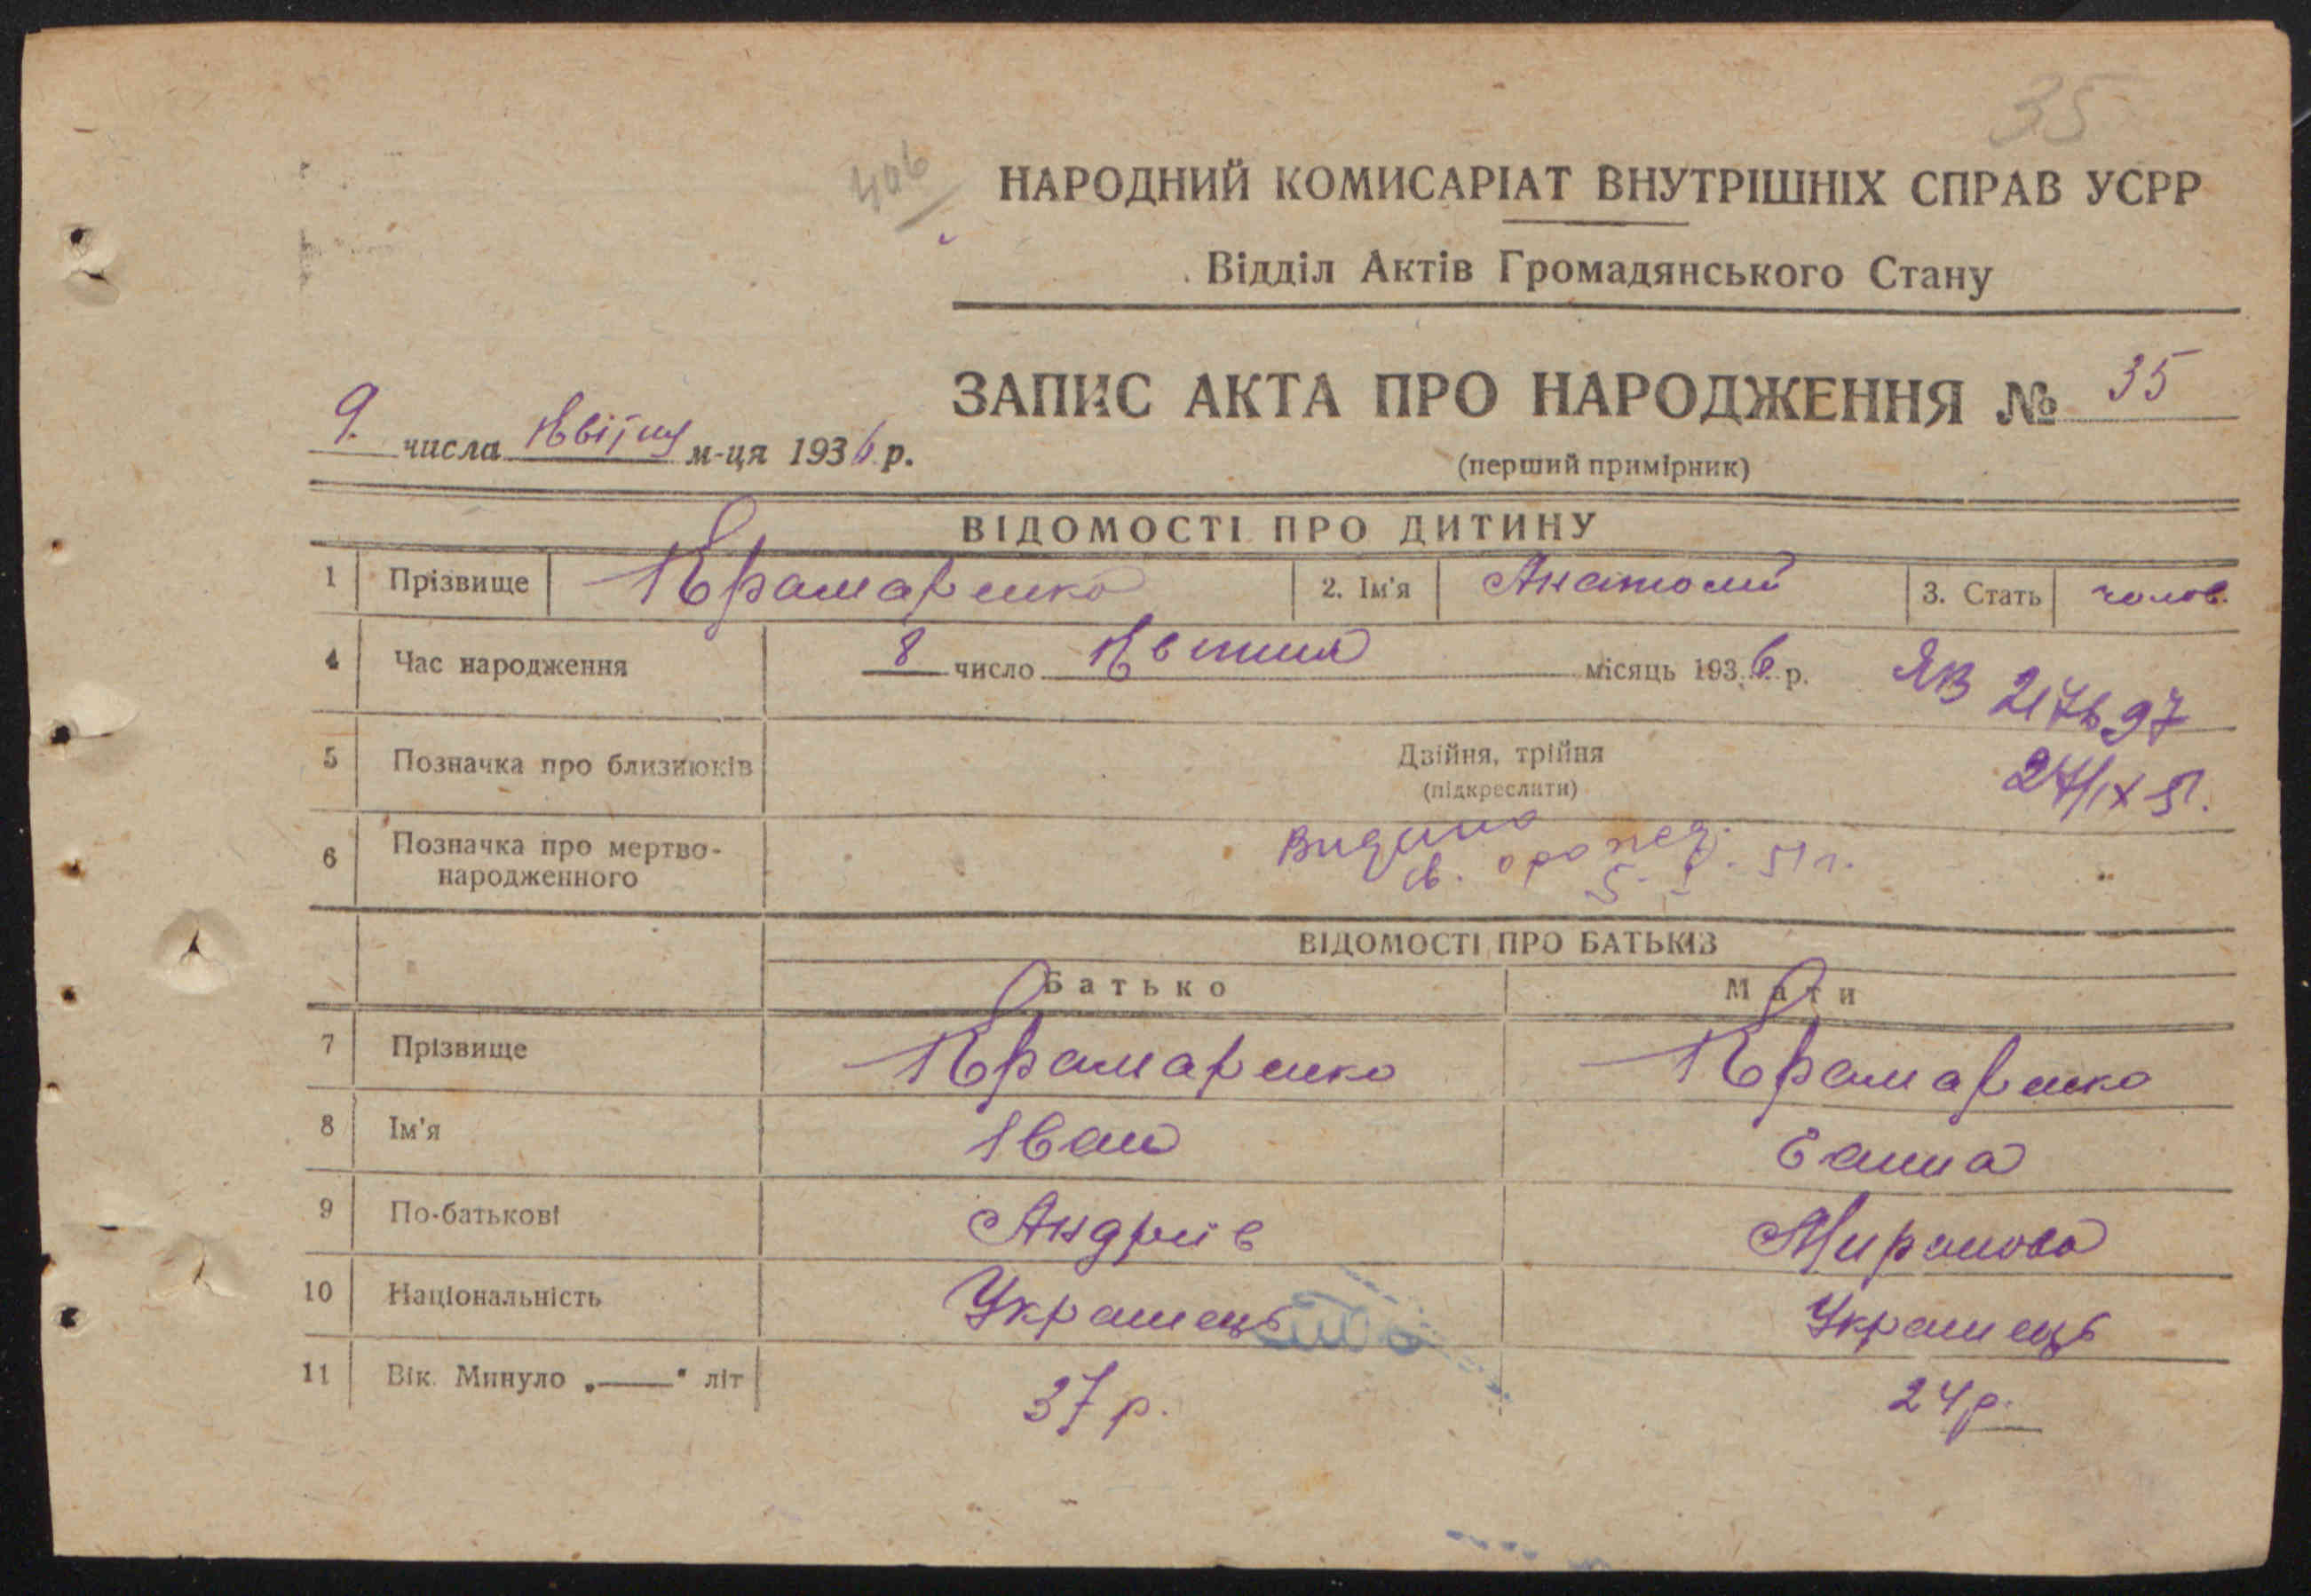 35
406
НАРОДНИЙ КОМИСАРІАТ ВНУТРІШНІХ СПРАВ УСРР
Відділ Актів Громадянського Стану
ЗАПИС АКТА ПРО НАРОДЖЕННЯ № 35
9. числа Квітня м-ця 1936 р.
(перший примірник)
ВІДОМОСТІ ПРО ДИТИНУ
1 Прізвище Крамаренко 2. Ім'я Анатолий 3. Стать чолов.
4 Час народження 8 число Квитня місяць 1936 р. ЯВ 217697
5 Позначка про близнюків Двійня, трійня
(підкреслити)
27/IX 51.
6 Позначка про мертво-
народженного
Видано
св.
51 г.
ВІДОМОСТІ ПРО БАТЬКІВ
Батько Мати
7 Прізвище Крамаренко Крамаренко
8 Ім'я Іван Ганна
9 По-батькові Андріїв Миронова
10 Національність Украинець Украинець
11 Вік. Минуло „—" літ 37 р. 24 р.